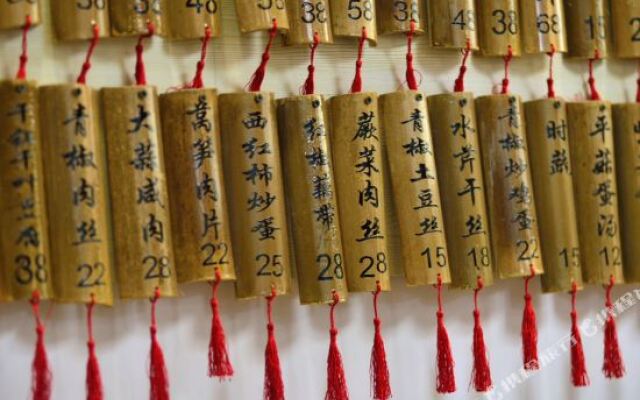 38
58
38
48
38
68
15
千张干叶豆腐
38
青椒肉丝
22
大蒜咸肉
28
莴笋肉片
22
西红柿炒蛋
25
红椒藕带
28
蕨菜肉丝
28
青椒土豆丝
15
水芹干丝
18
青椒炒鸡蛋
22
时蔬
15
平菇蛋汤
12